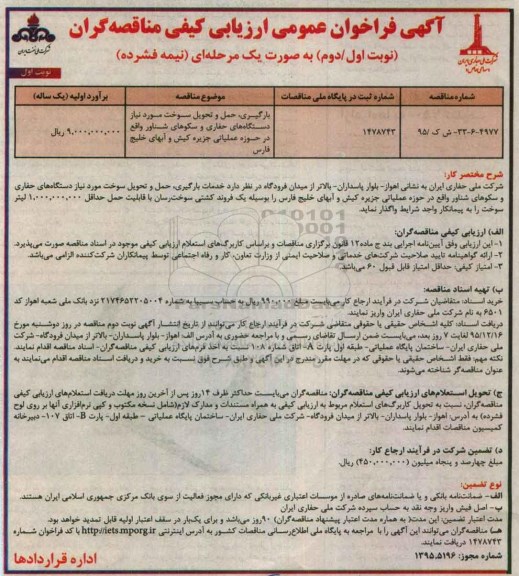 آگهی فراخوان عمومی ارزیابی کیفی مناقصه‌گران
(نوبت اول/دوم) به صورت یک مرحله‌ای (نیمه فشرده)
نوبت اول
شماره مناقصه
شماره ثبت در پایگاه ملی مناقصات
موضوع مناقصه
برآورد اولیه (یک ساله)
۳۳-۶-۴۹۷۷- ش ک /۹۵
۱۴۷۸۷۴۳
بارگیری، حمل و تحویل سوخت مورد نیاز
دستگاه‌های حفاری و سکوهای شناور واقع
در حوزه عملیاتی جزیره کیش و آبهای خلیج
فارس
۹,۰۰۰,۰۰۰,۰۰۰ ریال
شرح مختصر کار:
شرکت ملی حفاری ایران به نشانی اهواز- بلوار پاسداران- بالاتر از میدان فرودگاه در نظر دارد خدمات بارگیری، حمل و تحویل سوخت مورد نیاز دستگاه‌های حفاری
و سکوهای شناور واقع در حوزه عملیاتی جزیره کیش و آبهای خلیج فارس را بوسیله یک فروند کشتی سوخت‌رسان با قابلیت حمل حداقل ۱,۰۰۰,۰۰۰ لیتر
سوخت را به پیمانکار واجد شرایط واگذار نماید.
الف) ارزیابی کیفی مناقصه‌گران:
۱- این ارزیابی وفق آیین‌نامه اجرایی بند ج ماده۱۲ قانون برگزاری مناقصات و براساس کاربرگ‌های استعلام ارزیابی کیفی موجود در اسناد مناقصه صورت می‌پذیرد.
۲- ارائه گواهینامه تایید صلاحیت شرکت‌های خدماتی و صلاحیت ایمنی از وزارت تعاون، کار و رفاه اجتماعی توسط پیمانکاران شرکت‌کننده الزامی می‌باشد.
۳- امتیاز کیفی: حداقل امتیاز قابل قبول ۶۰ می‌باشد.
ب) تهیه اسناد مناقصه:
خرید اسناد: متقاضیان شرکت در فرآیند ارجاع کار می‌بایست مبلغ ۹۹۰,۰۰۰ ریال به حساب سیبا به شماره ۲۱۷۴۶۵۲۲۰۵۰۰۴ نزد بانک ملی شعبه اهواز کد
۶۵۰۱ به نام شرکت ملی حفاری ایران واریز نمایند.
دریافت اسناد: کلیه اشخاص حقیقی یا حقوقی متقاضی شرکت در فرآیند ارجاع کار می‌توانند از تاریخ انتشار آگهی نوبت دوم مناقصه در روز دوشنبه مورخ
۹۵/۱۲/۱۶ لغایت ۷ روز بعد، می‌بایست ضمن ارسال تقاضای رسمی و با مراجعه حضوری به آدرس الف اهواز- بلوار پاسداران- بالاتر از میدان فرودگاه- شرکت
ملی حفاری ایران- ساختمان پایگاه عملیاتی- طبقه اول پارت A- اتاق شماره ۱۰۸ نسبت به اخذ فرم‌های ارزیابی کیفی مناقصه‌گران- اسناد مناقصه اقدام نمایند.
نکته مهم: فقط اشخاص حقیقی یا حقوقی که در مهلت مقرر مندرج در این آگهی و طبق شرح فوق نسبت به خرید و دریافت اسناد مناقصه اقدام می‌نمایند به
عنوان مناقصه‌گر شناخته می‌شوند.
ج) تحویل استعلام‌های ارزیابی کیفی مناقصه‌گران: مناقصه گران می‌بایست حداکثر ظرف ۱۴ روز پس از آخرین روز مهلت دریافت استعلام‌های ارزیابی کیفی
مناقصه‌گران، نسبت به تحویل کاربرگ‌های استعلام مربوط به ارزیابی کیفی به همراه مستندات و مدارک لازم(شامل نسخه مکتوب و کپی نرم‌افزاری آنها بر روی لوح
فشرده) به آدرس: اهواز- بلوار پاسداران- بالاتر از میدان فرودگاه- شرکت ملی حفاری ایران- ساختمان پایگاه عملیاتی – طبقه اول- پارت B- اتاق ۱۰۷- دبیرخانه
کمیسیون مناقصات اقدام نمایند.
د) تضمین شرکت در فرآیند ارجاع کار:
مبلغ چهارصد و پنجاه میلیون (۴۵۰,۰۰۰,۰۰۰) ریال.
نوع تضمین:
الف- ضمانت‌نامه بانکی و یا ضمانت‌نامه‌های صادره از موسسات اعتباری غیربانکی که دارای مجوز فعالیت از سوی بانک مرکزی جمهوری اسلامی ایران هستند.
ب- اصل فیش واریز وجه نقد به حساب سپرده شرکت ملی حفاری ایران
مدت اعتبار تضمین: این مدت( به همراه مدت اعتبار پیشنهاد مناقصه‌گران) ۹۰روز می‌باشد و برای یک‌بار در سقف اعتبار اولیه قابل تمدید خواهد بود.
هـ) مناقصه‌گران می‌توانند این آگهی را با مراجعه به پایگاه ملی اطلاع‌رسانی مناقصات کشور به آدرس اینترنتی http://iets.mporg.ir با کد فراخوان شماره
۱۴۷۸۷۴۳ دریافت نمایند.
شماره مجوز: ۱۳۹۵.۵۱۹۶
اداره قراردادها